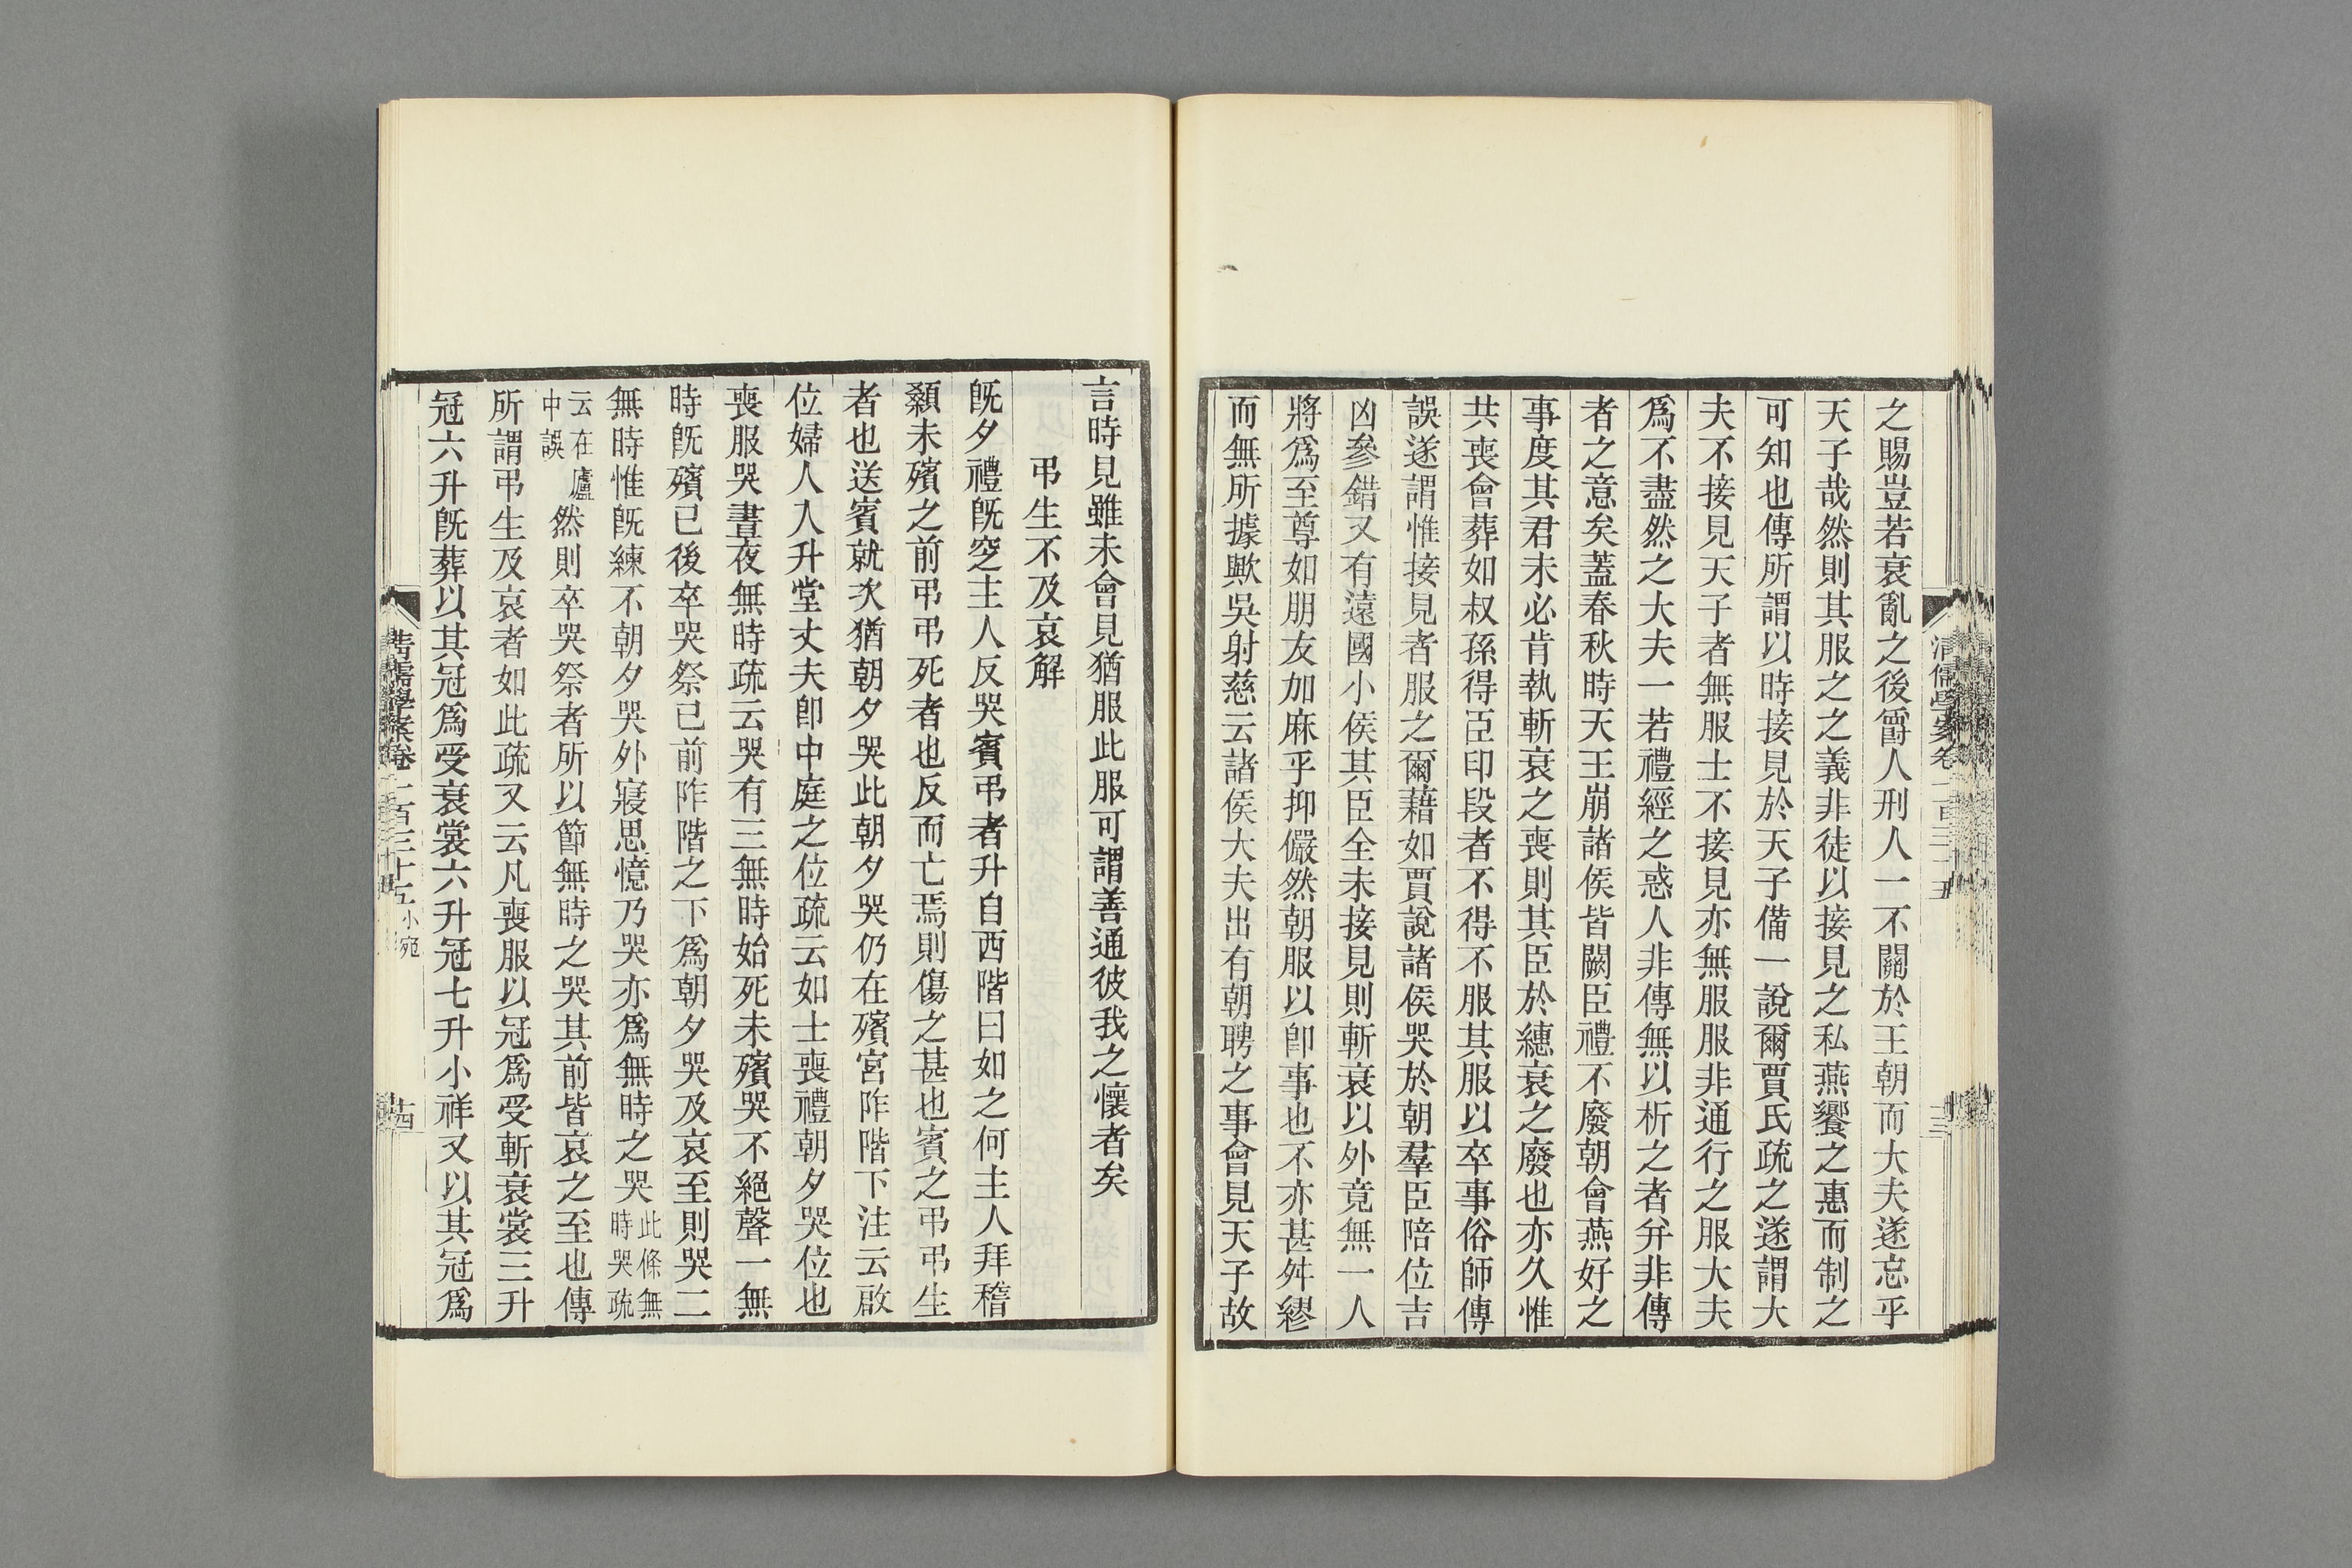 之賜豈若衰亂之後爵人刑人一不關於王朝而大夫遂忘乎
天子哉然則其服之之義非徒以接見之私燕饗之惠而制之
可知也傳所謂以時接見於天子備一說爾賈氏疏之遂謂大
夫不接見天子者無服士不接見亦無服服非通行之服大夫
爲不盡然之大夫一若禮經之惑人非傳無以析之者弁非傳
者之意矣蓋春秋時天王崩諸侯皆闕臣禮不廢朝會燕好之
事度其君未必肯執斬衰之喪則其臣於繐衰之廢也亦久惟
共喪會葬如叔孫得臣印段者不得不服其服以卒事俗師傳
誤遂謂惟接見者服之爾藉如賈說諸侯哭於朝羣臣陪位吉
凶參錯又有遠國小侯其臣全未接見則斬衰以外竟無一人
將爲至尊如朋友加麻乎抑儼然朝服以卽事也不亦甚舛繆
而無所據歟吳射慈云諸侯大夫出有朝聘之事會見天子故
言時見雖未會見猶服此服可謂善通彼我之懷者矣
弔生不及哀解
旣夕禮旣窆主人反哭賓弔者升自西階曰如之何主人拜稽
顙未殯之前弔弔死者也反而亡焉則傷之甚也賓之弔弔生
者也送賓就次猶朝夕哭此朝夕哭仍在殯宮阼階下注云啟
位婦人入升堂丈夫卽中庭之位疏云如士喪禮朝夕哭位也
喪服哭晝夜無時疏云哭有三無時始死未殯哭不絕聲一無
時旣殯已後卒哭祭已前阼階之下爲朝夕哭及哀至則哭二
無時惟旣練不朝夕哭外寢思憶乃哭亦爲無時之哭此條無時哭疏
云在廬中誤然則卒哭祭者所以節無時之哭其前皆哀之至也傳
所謂弔生及哀者如此疏又云凡喪服以冠爲受斬衰裳三升
冠六升旣葬以其冠爲受衰裳六升冠七升小祥又以其冠爲
清儒學案卷一百三十五 小宛
十四